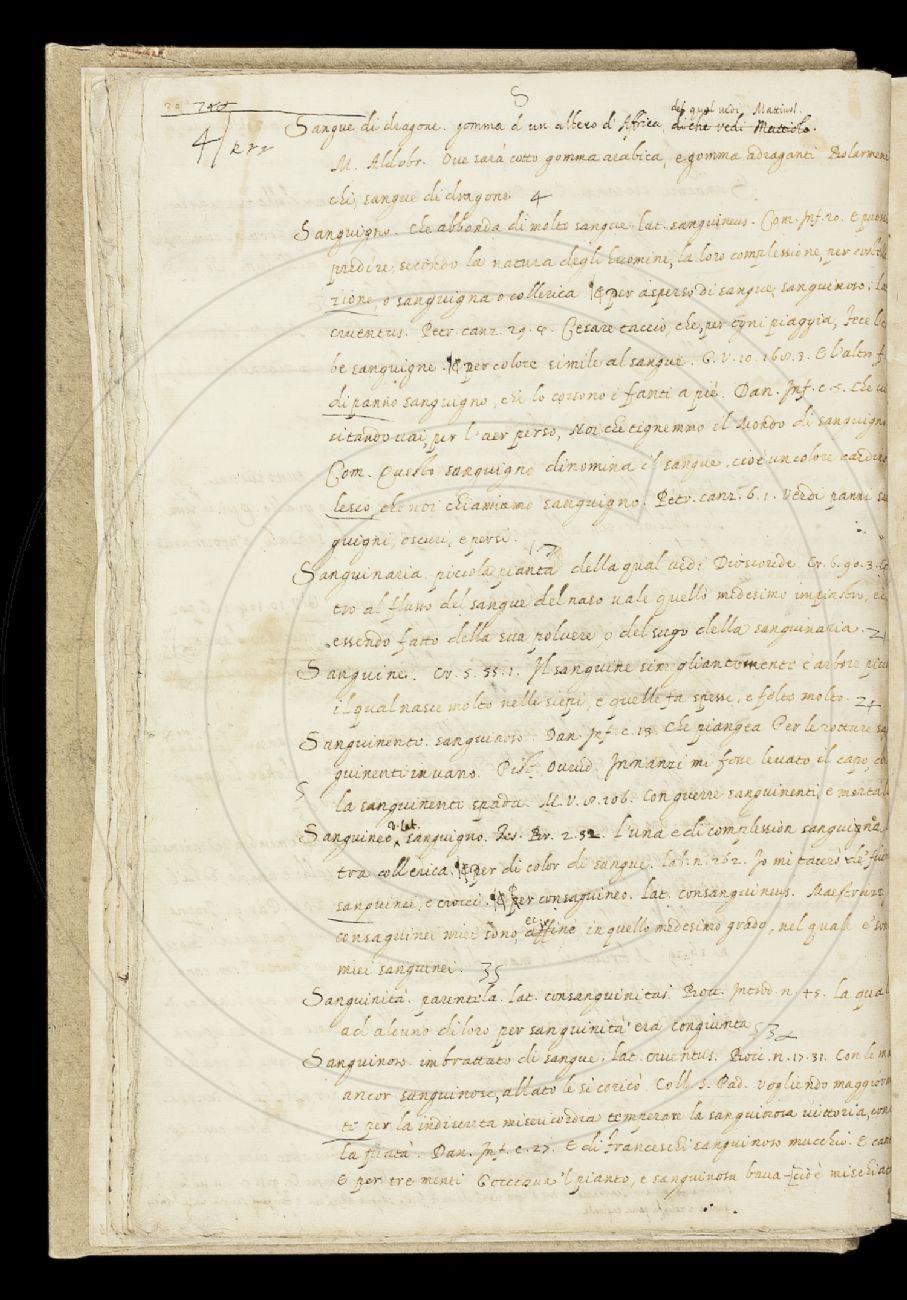 S
del qual vedi Mattiuol.
Sangue di dragone. gomma d un albero d'Affrica, di che vedi Mattiolo.
M. Aldobr. Ove sarà cotto gomma arabica, e gomma adraganti Bolarmeni
chi, sangue di dragone 4
Sanguigno. Che abbonda di molto sangue. lat. sanguineus. Com. Inf. 20. E puossi
predire, secondo la natura degli huomini, la loro complessione, per
zione, o sanguigna o collerica. per asperso di sangue, sanguinoso; la
cruentus. Petr. canz. 29. 4. Cesare taccio, che, per ogni piaggia, fece l'er
be sanguigne. per colore simile al sangue. G. V. 10. 168. 3. E l'altro f
di panno sanguigno, chi lo corsono i fanti a piè. Dan. Inf. c. 5. Che vi
sitando vai, per l'aer perso, Noi che tignemmo il Mondo di sanguigno
Com. Questo sanguigno dinomina il sangue, cioè un colore cardina
lesco, che noi chiamiamo sanguigno. Petr. canz. 6. 1. Verdi panni san
guigni, oscuri, e persi.
Sanguinaria. piccola pianta della qual vedi Dioscoride. Cr. 6. 90. 3. Co
tro al flusso del sangue del naso vale quello medesimo impiastro, e
essendo fatto della sua polvere, o del sugo della sanguinaria. 24
Sanguine. Cr. 5. 55. 1. Il sanguine simigliantemente è arbore picc
il qual nasce molto nelle siepi, e quelle fa spesse, e folte molto. 24
Sanguinento. sanguinoso. Dan. Inf. c. 13. Che piangea Per le rotture san
guinenti invano. Pist. Ovvid. Innanzi mi fosse levato il capo, co
la sanguinenti spada. M. V. 8. 106. Con guerre sanguinenti, e mortal
Sanguineo. lat. sanguigno. Tes. Br. 2. 32. l'una è di complession sanguigna,
tra collerica. per di color di sangue. Lab. n. 262. Io mi tacerò de' fiu
sanguinei, e crocei. per consaguineo. lat. consanguineus. Maestruzz.
consaguinei miei sono affine in quello medesimo grado, nel quale e' son
miei sanguinei. 35
Sanguinità. parentela. lat. consanguinitas. Bocc. Introd. n. 45. La qual
ad alcuno di loro per sanguinità era congiunta
Sanguinoso. imbrattato di sangue. lat. cruentus. Bocc. n. 17. 31. Con le ma
ancor sanguinose, allato le si coricò. Coll. S. Pad. Vogliendo maggiorm
te per la indiscreta misericordia temperare la sanguinosa vittoria, con
la pietà. Dan. Inf. c. 27. E di franceschi sanguinoso mucchio. E can
E per tre menti Gocciava 'l pianto, e sanguinosa bava - cioè mischiat